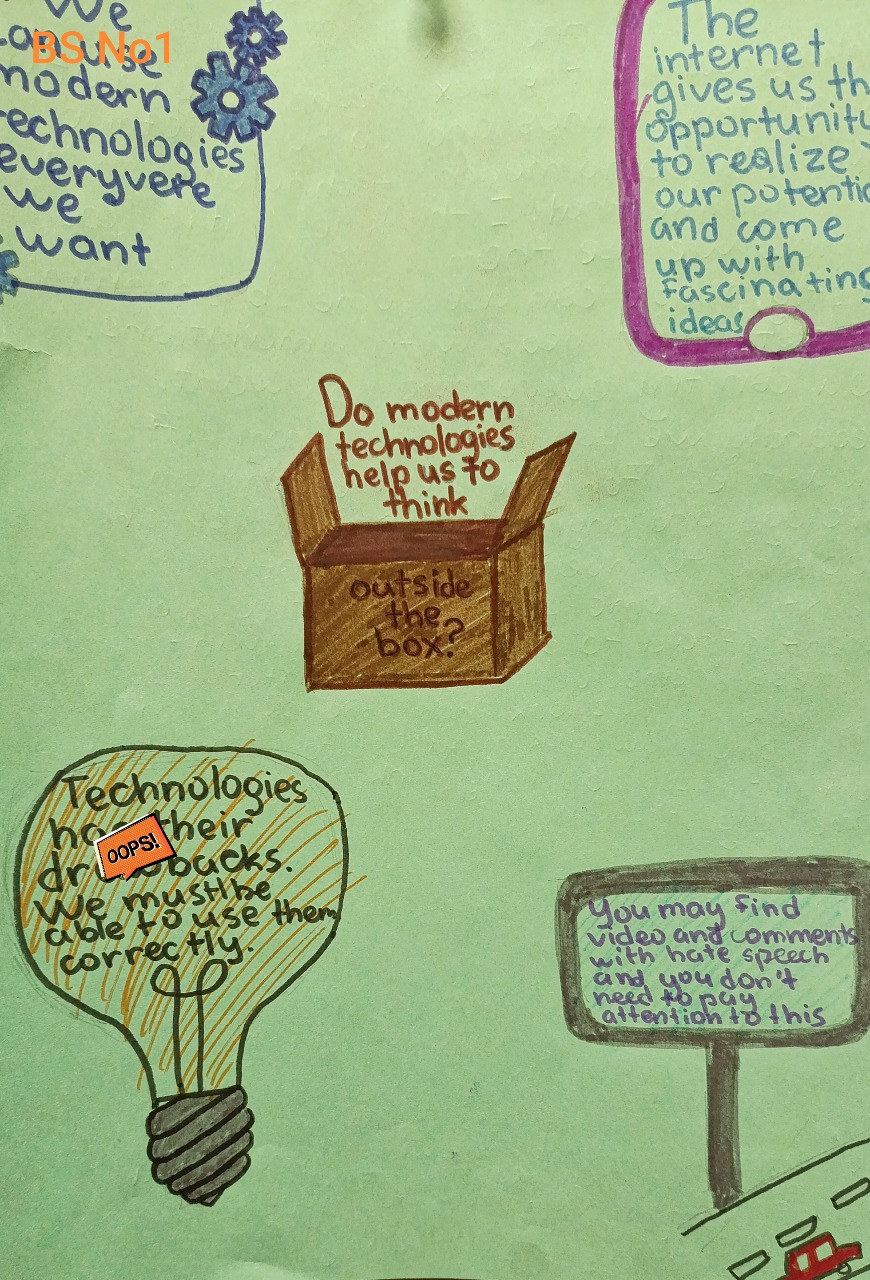 BS No1
We
can use
modern
technologies
everyvere
we
want
The
internet
gives us th
opportunity
to realize
our potentia
and come
up with
fascinating
ideas
Do modern
technologies
help us to
think
outside
the
box?
Technologies
their
OOPS!
drawbacks.
We must be
able to use them
correctly.
You may find
video and comments
with hate speech
and you don't
need to pay
attention to this